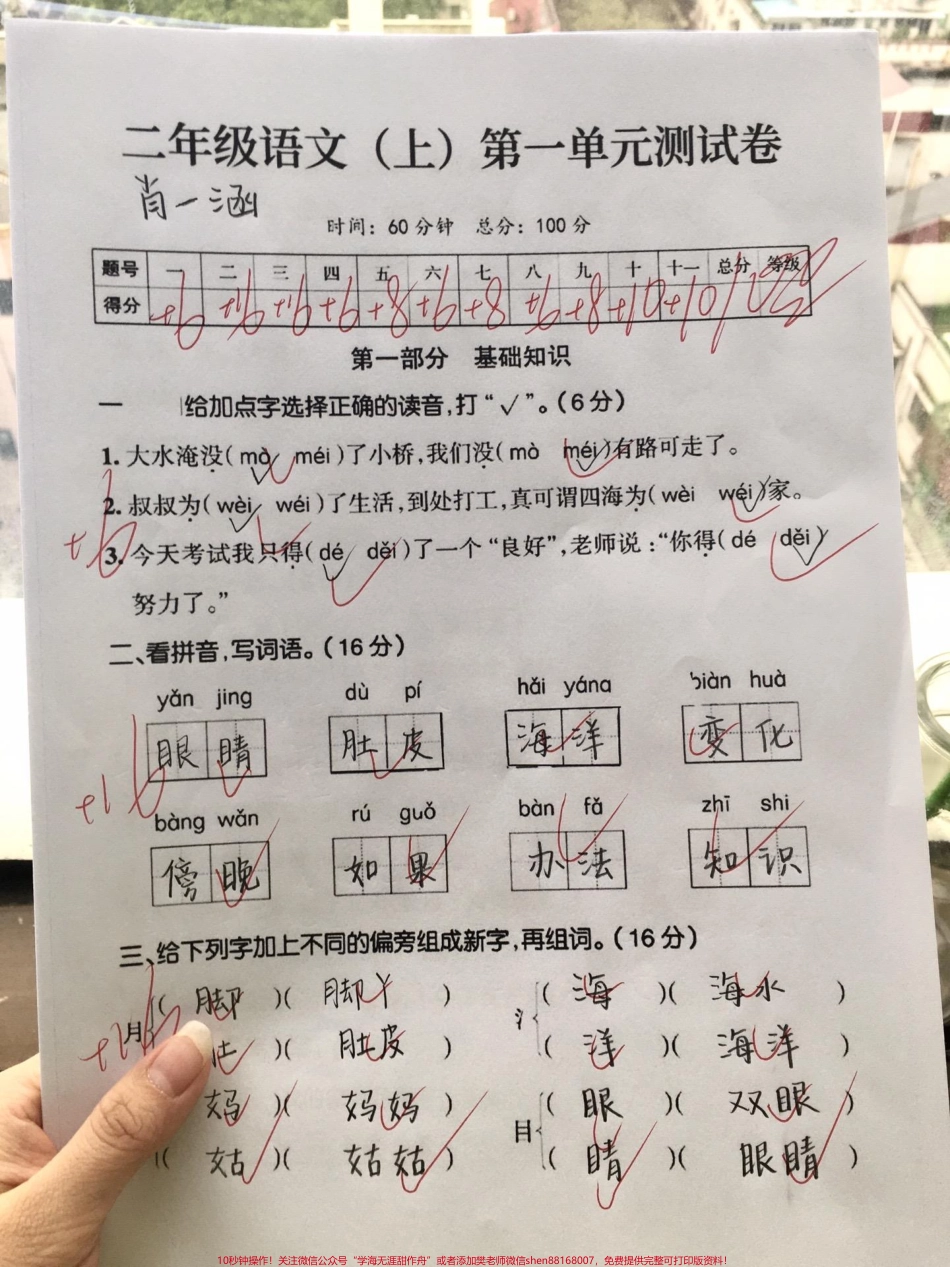 二年级语文（上）第一单元测试卷
肖一涵
时间：60分钟 总分：100分
题号 一 二 三 四 五 六 七 八 九 十 十一 总分 等级
得分 +6 +16 +16 +6 +8 +6 +8 +6 +8 +10 +10
第一部分 基础知识
一 给加点字选择正确的读音，打“√”。（6分）
1. 大水淹没（mò √ méi）了小桥，我们没（mò méi √）有路可走了。
2. 叔叔为（wèi √ wéi）了生活，到处打工，真可谓四海为（wèi wéi √）家。
3. 今天考试我只得（dé √ děi）了一个“良好”，老师说：“你得（dé děi √）
努力了。”
+6
二、看拼音，写词语。（16分）
yǎn jing dù pí hǎi yáng biàn huà
眼睛 肚皮 海洋 变化
+16
bàng wǎn rú guǒ bàn fǎ zhī shi
傍晚 如果 办法 知识
三、给下列字加上不同的偏旁组成新字，再组词。（16分）
月 （ 脚 ）（ 脚丫 ） 氵 （ 海 ）（ 海水 ）
+16
肚 ）（ 肚皮 ） （ 洋 ）（ 海洋 ）
妈 ）（ 妈妈 ） 目 （ 眼 ）（ 双眼 ）
（ 姑 ）（ 姑姑 ） （ 睛 ）（ 眼睛 ）
10秒钟操作！关注微信公众号“学海无涯甜作舟”或者添加樊老师微信shen88168007，免费提供完整可打印版资料！